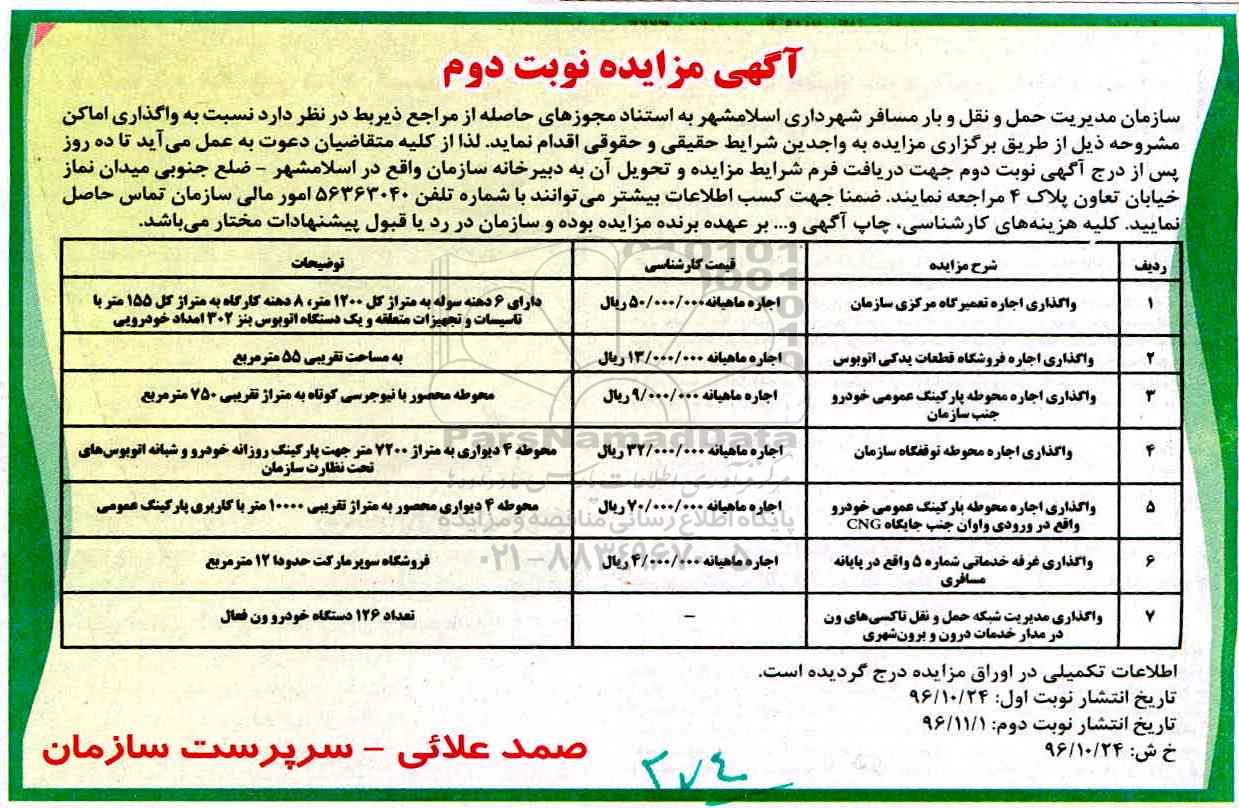 آگهی مزایده نوبت دوم
سازمان مدیریت حمل و نقل و بار مسافر شهرداری اسلامشهر به استناد مجوزهای حاصله از مراجع ذیربط در نظر دارد نسبت به واگذاری اماکن
مشروحه ذیل از طریق برگزاری مزایده به واجدین شرایط حقیقی و حقوقی اقدام نماید. لذا از کلیه متقاضیان دعوت به عمل می‌آید تا ده روز
پس از درج آگهی نوبت دوم جهت دریافت فرم شرایط مزایده و تحویل آن به دبیرخانه سازمان واقع در اسلامشهر - ضلع جنوبی میدان نماز
خیابان تعاون پلاک ۴ مراجعه نمایند. ضمنا جهت کسب اطلاعات بیشتر می‌توانند با شماره تلفن ۵۶۳۶۳۰۴۰ امور مالی سازمان تماس حاصل
نمایید. کلیه هزینه‌های کارشناسی، چاپ آگهی و... بر عهده برنده مزایده بوده و سازمان در رد یا قبول پیشنهادات مختار می‌باشد.
ردیف شرح مزایده قیمت کارشناسی توضیحات
۱ واگذاری اجاره تعمیرگاه مرکزی سازمان اجاره ماهیانه ۵۰/۰۰۰/۰۰۰ ریال دارای ۶ دهنه سوله به متراژ کل ۱۲۰۰ متر، ۸ دهنه کارگاه به متراژ کل ۱۵۵ متر با
تاسیسات و تجهیزات متعلقه و یک دستگاه اتوبوس بنز ۳۰۲ امداد خودرویی
۲ واگذاری اجاره فروشگاه قطعات یدکی اتوبوس اجاره ماهیانه ۱۳/۰۰۰/۰۰۰ ریال به مساحت تقریبی ۵۵ مترمربع
۳ واگذاری اجاره محوطه پارکینگ عمومی خودرو اجاره ماهیانه ۹/۰۰۰/۰۰۰ ریال محوطه محصور با نیوجرسی کوتاه به متراژ تقریبی ۷۵۰ مترمربع
جنب سازمان
۴ واگذاری اجاره محوطه توقفگاه سازمان اجاره ماهیانه ۳۲/۰۰۰/۰۰۰ ریال محوطه ۴ دیواری به متراژ ۷۲۰۰ متر جهت پارکینگ روزانه خودرو و شبانه اتوبوس‌های
تحت نظارت سازمان
۵ واگذاری اجاره محوطه پارکینگ عمومی خودرو اجاره ماهیانه ۷۰/۰۰۰/۰۰۰ ریال محوطه ۴ دیواری محصور به متراژ تقریبی ۱۰۰۰۰ متر با کاربری پارکینگ عمومی
واقع در ورودی واوان جنب جایگاه CNG
۶ واگذاری غرفه خدماتی شماره ۵ واقع در پایانه اجاره ماهیانه ۴/۰۰۰/۰۰۰ ریال فروشگاه سوپرمارکت حدودا ۱۲ مترمربع
مسافری
۷ واگذاری مدیریت شبکه حمل و نقل تاکسی‌های ون - تعداد ۱۲۶ دستگاه خودرو ون فعال
در مدار خدمات درون و برون‌شهری
ParsNamadData
پایگاه اطلاع رسانی مناقصه و مزایده
۰۲۱-۸۸۳۴۹۶۷۰-۵
اطلاعات تکمیلی در اوراق مزایده درج گردیده است.
تاریخ انتشار نوبت اول: ۹۶/۱۰/۲۴
تاریخ انتشار نوبت دوم: ۹۶/۱۱/۱
خ ش: ۹۶/۱۰/۲۴
صمد علائی - سرپرست سازمان
۲۷۴